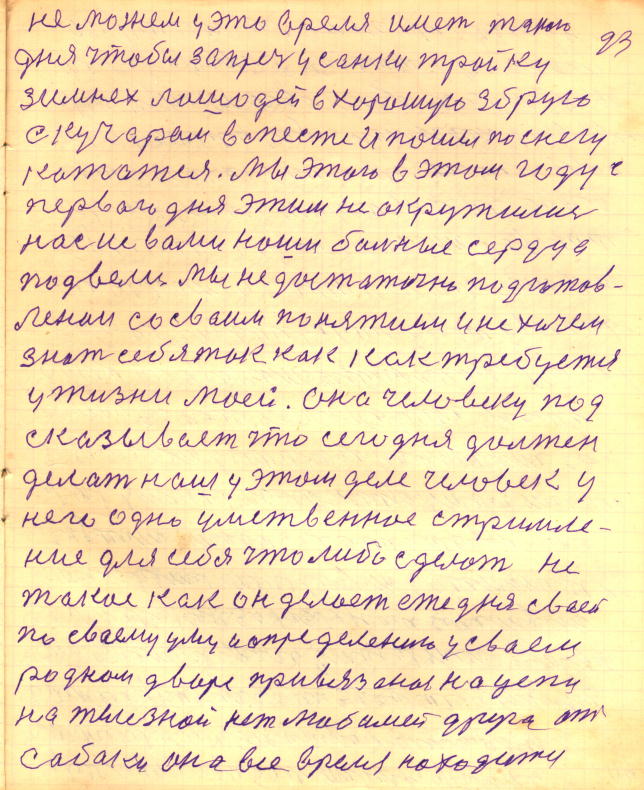 не можем у это время имет такого 93
дня чтобы запреч у санки тройку
зимнех лошодей в хорошую збрую
с кучарам вместе и пошли по снегу
кататся. Мы этого в этом году с
первого дня этим не окружилис
нас и с вами наши больные сердца
подвели мы недостаточно подготов-
лены со своим понятием и не хочем
знат себя так как как требуется
у жизни моей. Она человеку под
сказывает что сегодня должен
делат наш у этом деле человек у
него одно умственное стримле-
ние для себя что либо сделат не
такое как он делает ежедня своей
по сваему уму и определению у сваем
родном дворе привязаный на цепи
на железной нет любимей друга от
сабаки она все время находится